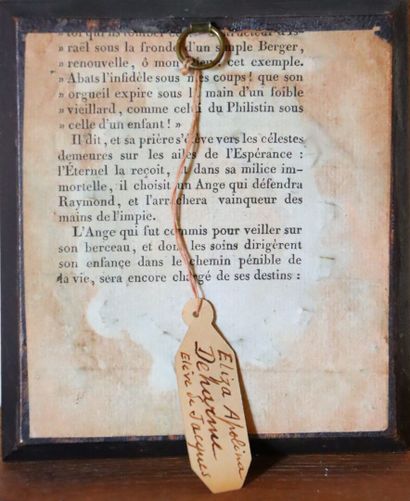 » toi qui fis tomber
» raël sous la fronde d'un simple Berger,
» renouvelle, ô mon cet exemple.
» Abats l'infidèle sous mes coups! que son
» orgueil expire sous la main d'un foible
» vieillard, comme celui du Philistin sous
» celle d'un enfant! »
Il dit, et sa prière s'élève vers les célestes
demeures sur les ailes de l'Espérance :
l'Éternel la reçoit, et dans sa milice im-
mortelle, il choisit un Ange qui défendra
Raymond, et l'arrachera vainqueur des
mains de l'impie.
L'Ange qui fut commis pour veiller sur
son berceau, et dont les soins dirigèrent
son enfance dans le chemin pénible de
la vie, sera encore chargé de ses destins :
Eliza Apoline
Deharme
Elève de Jacques